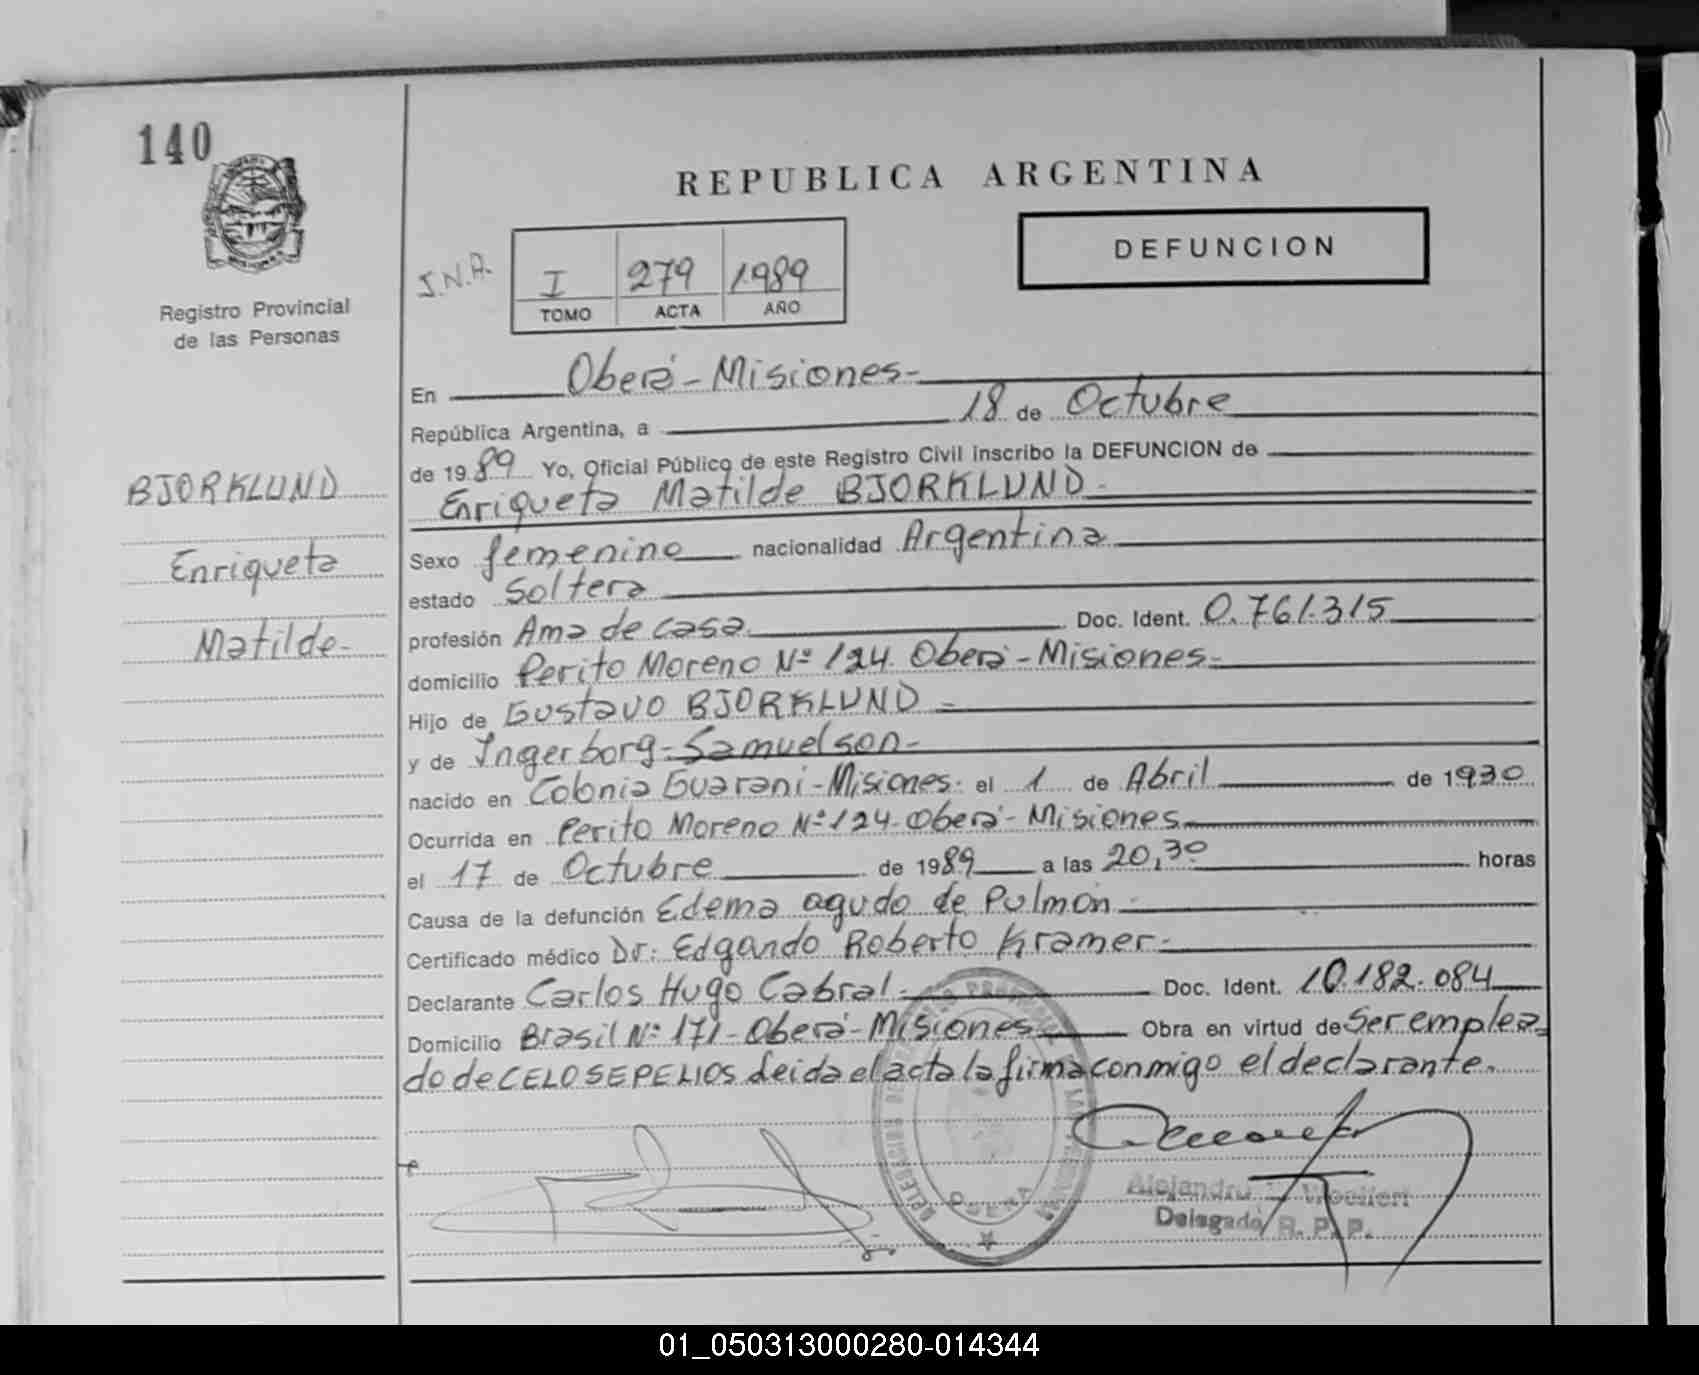 140
REPUBLICA ARGENTINA
DEFUNCION
S.N.A.
I 279 1989
TOMO ACTA AÑO
Registro Provincial
de las Personas
BJORKLUND
Enriqueta
Matilde-
En Oberá-Misiones-
República Argentina, a 18 de Octubre
de 1989 Yo, Oficial Público de este Registro Civil inscribo la DEFUNCION de
Enriqueta Matilde BJORKLUND-
Sexo femenino nacionalidad Argentina
estado Soltera
profesión Ama de casa Doc. Ident. 0.761.315
domicilio Perito Moreno Nº 124. Oberá-Misiones-
Hijo de Gustavo BJORKLUND-
y de Ingerborg-Samuelson-
nacido en Colonia Guarani-Misiones- el 1 de Abril de 1930
Ocurrida en Perito Moreno Nº 124-Oberá-Misiones
el 17 de Octubre de 1989 a las 20,30 horas
Causa de la defunción Edema agudo de Pulmón-
Certificado médico Dr: Edgardo Roberto Kramer-
Declarante Carlos Hugo Cabral- Doc. Ident. 10.182.084
Domicilio Brasil Nº 171-Oberá-Misiones Obra en virtud de Ser emplea-
do de CELO SEPELIOS Leida el acta la firma conmigo el declarante.
OBERA
Alejandro
Delegado R. P. P.
01_050313000280-014344